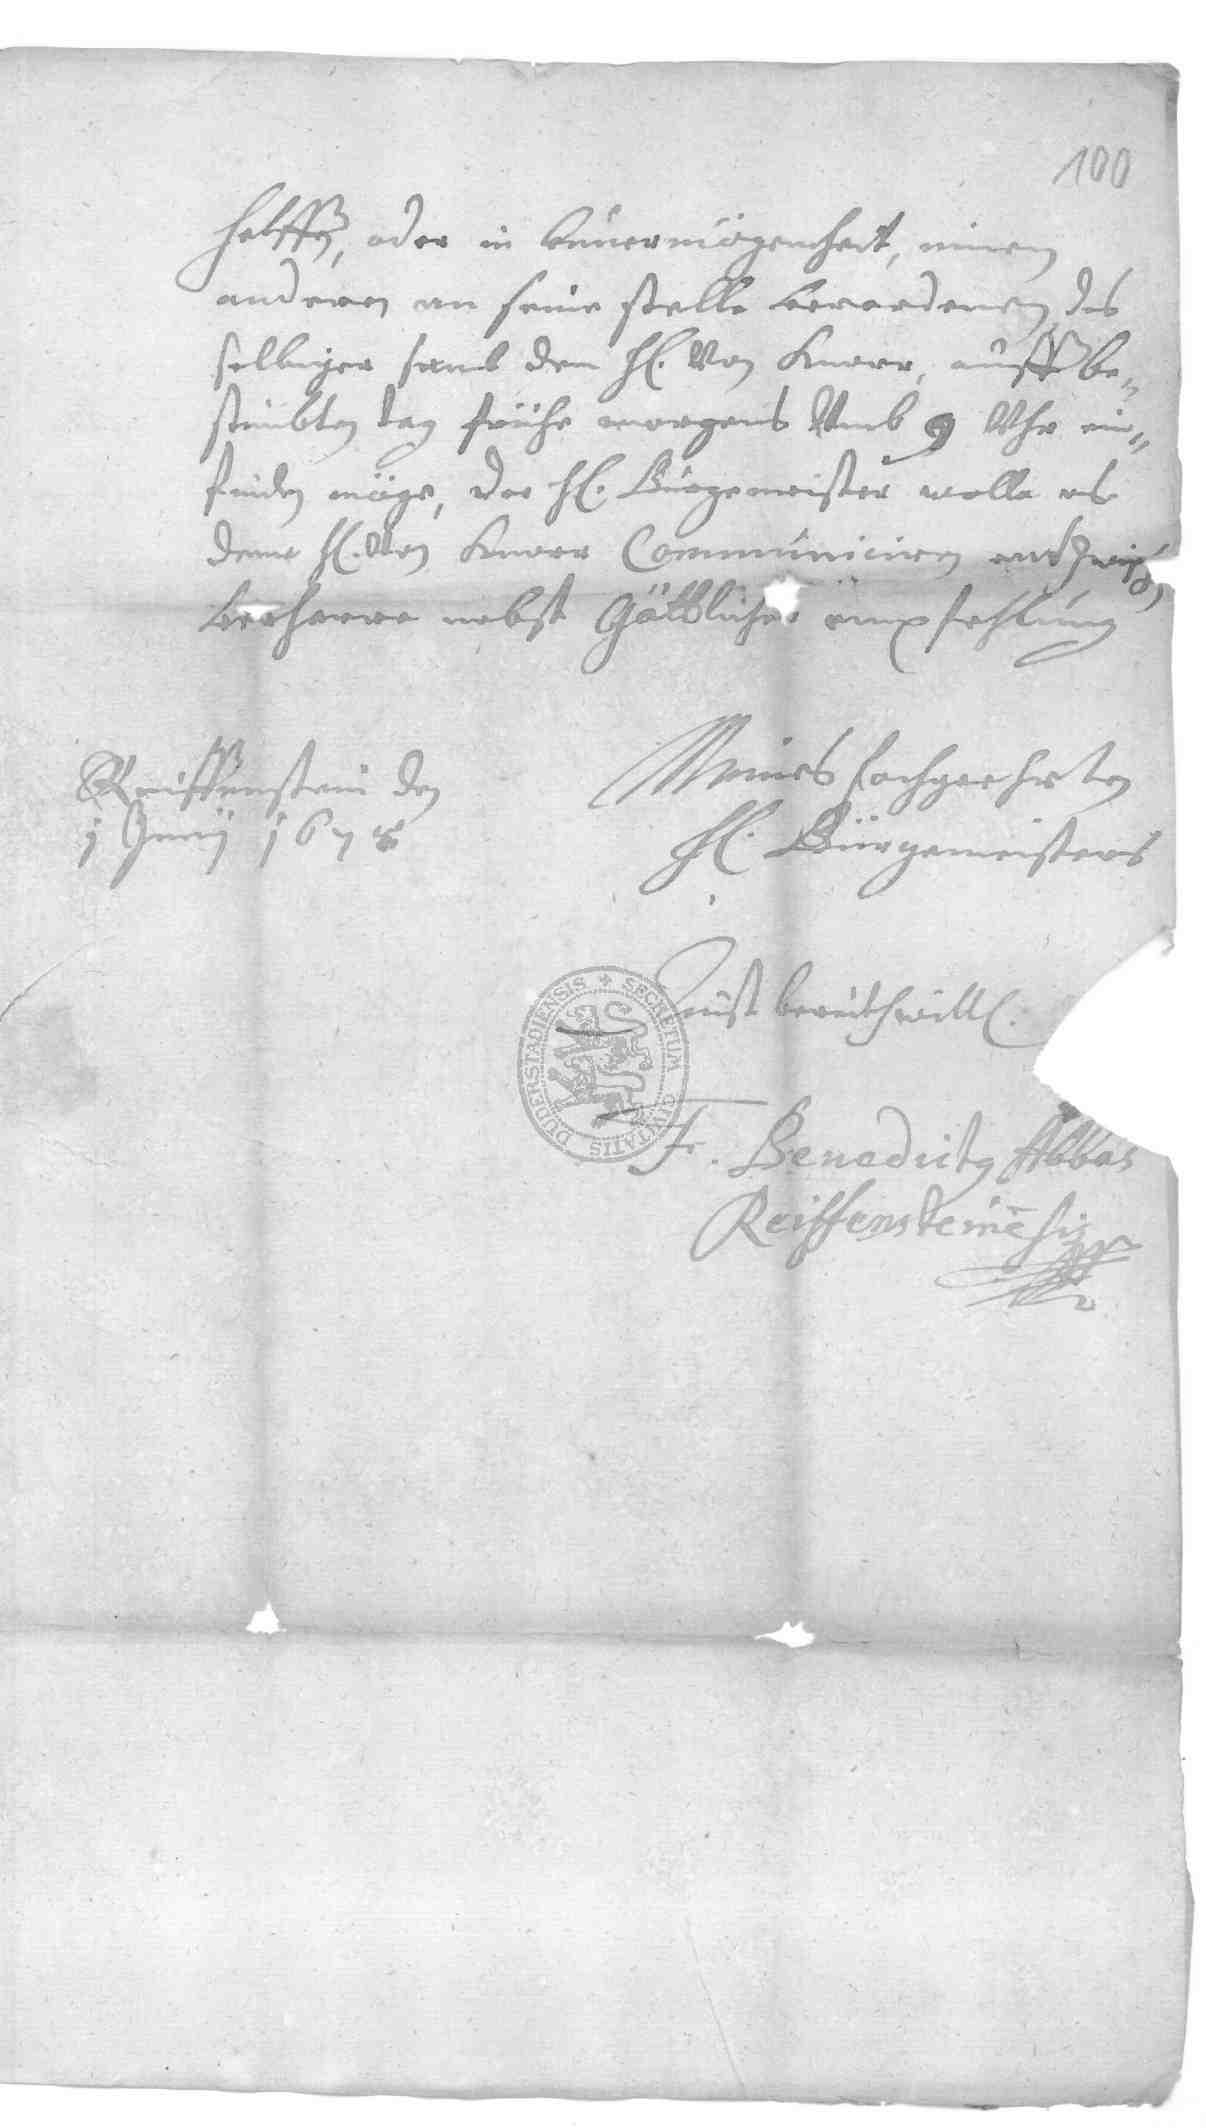 100
helffen, oder in Unvermögenheit, einen
anderen an seine stelle verordenen, das
selbiger samb dem H. Von Knorr, auff be-
stimbten tag frühe morgens Vmb 9 Vhr ein-
finden möge, der H. Bürgemeister wolle es
deme H. Von Knorr Communiciren
Verharre nebst Göttlicher empfehlung
Reiffenstein den
1 Junij 1678
Meines hochgeehrten
H. Bürgemeisters
Dinst bereithwill.
F. Benedictg Abbas
Reiffensteinēsis
SECRETUM CIVITATIS DUDERSTADIENSIS